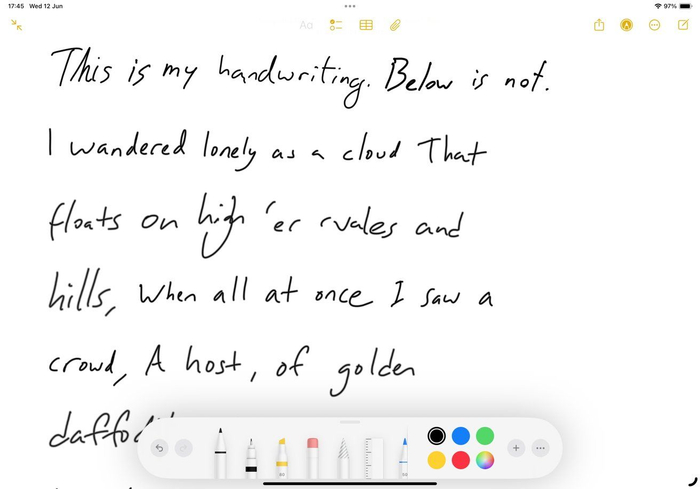 17:45 Wed 12 Jun 97%
Aa
This is my handwriting. Below is not.
I wandered lonely as a cloud That
floats on high 'er vales and
hills, When all at once I saw a
crowd, A host, of golden